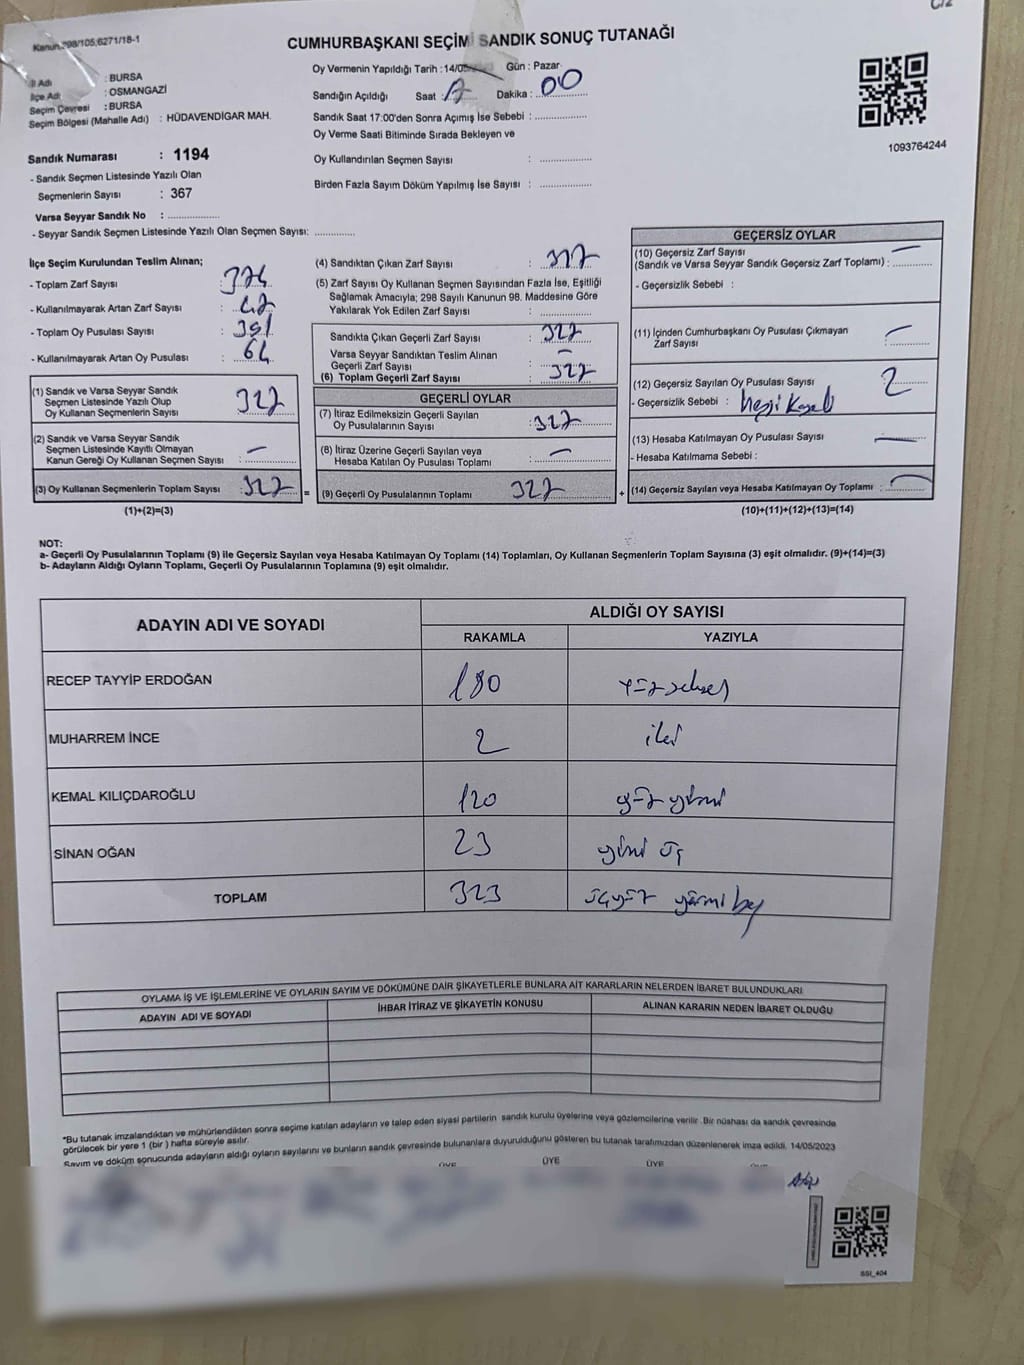 C/2
Kanun:298/105;6271/18-1
CUMHURBAŞKANI SEÇİMİ SANDIK SONUÇ TUTANAĞI
İl Adı : BURSA
İlçe Adı : OSMANGAZİ
Seçim Çevresi : BURSA
Seçim Bölgesi (Mahalle Adı) : HÜDAVENDİGAR MAH.
Oy Vermenin Yapıldığı Tarih : 14/05 Gün : Pazar
Sandığın Açıldığı Saat : Dakika : 00
Sandık Saat 17:00'den Sonra Açımış İse Sebebi :
Oy Verme Saati Bitiminde Sırada Bekleyen ve
Oy Kullandırılan Seçmen Sayısı :
Birden Fazla Sayım Döküm Yapılmış İse Sayısı :
1093764244
Sandık Numarası : 1194
- Sandık Seçmen Listesinde Yazılı Olan
Seçmenlerin Sayısı : 367
Varsa Seyyar Sandık No :
- Seyyar Sandık Seçmen Listesinde Yazılı Olan Seçmen Sayısı:
İlçe Seçim Kurulundan Teslim Alınan;
- Toplam Zarf Sayısı : 374
- Kullanılmayarak Artan Zarf Sayısı : 47
- Toplam Oy Pusulası Sayısı : 391
- Kullanılmayarak Artan Oy Pusulası : 64
(1) Sandık ve Varsa Seyyar Sandık
Seçmen Listesinde Yazılı Olup
Oy Kullanan Seçmenlerin Sayısı 327
(2) Sandık ve Varsa Seyyar Sandık
Seçmen Listesinde Kayıtlı Olmayan
Kanun Gereği Oy Kullanan Seçmen Sayısı : —
(3) Oy Kullanan Seçmenlerin Toplam Sayısı : 327
(1)+(2)=(3)
(4) Sandıktan Çıkan Zarf Sayısı : 327
(5) Zarf Sayısı Oy Kullanan Seçmen Sayısından Fazla İse, Eşitliği
Sağlamak Amacıyla; 298 Sayılı Kanunun 98. Maddesine Göre
Yakılarak Yok Edilen Zarf Sayısı :
Sandıkta Çıkan Geçerli Zarf Sayısı : 327
Varsa Seyyar Sandıktan Teslim Alınan
Geçerli Zarf Sayısı : —
(6) Toplam Geçerli Zarf Sayısı : 327
GEÇERLİ OYLAR
(7) İtiraz Edilmeksizin Geçerli Sayılan
Oy Pusulalarının Sayısı : 327
(8) İtiraz Üzerine Geçerli Sayılan veya
Hesaba Katılan Oy Pusulası Toplamı : —
= (9) Geçerli Oy Pusulalarının Toplamı 327 +
GEÇERSİZ OYLAR
(10) Geçersiz Zarf Sayısı —
(Sandık ve Varsa Seyyar Sandık Geçersiz Zarf Toplamı) :
- Geçersizlik Sebebi :
(11) İçinden Cumhurbaşkanı Oy Pusulası Çıkmayan
Zarf Sayısı : —
(12) Geçersiz Sayılan Oy Pusulası Sayısı : 2
- Geçersizlik Sebebi :
(13) Hesaba Katılmayan Oy Pusulası Sayısı : —
- Hesaba Katılmama Sebebi :
(14) Geçersiz Sayılan veya Hesaba Katılmayan Oy Toplamı : —
(10)+(11)+(12)+(13)=(14)
NOT:
a- Geçerli Oy Pusulalarının Toplamı (9) ile Geçersiz Sayılan veya Hesaba Katılmayan Oy Toplamı (14) Toplamları, Oy Kullanan Seçmenlerin Toplam Sayısına (3) eşit olmalıdır. (9)+(14)=(3)
b- Adayların Aldığı Oyların Toplamı, Geçerli Oy Pusulalarının Toplamına (9) eşit olmalıdır.
ADAYIN ADI VE SOYADI
ALDIĞI OY SAYISI
RAKAMLA YAZIYLA
RECEP TAYYİP ERDOĞAN 180 yüzseksen
MUHARREM İNCE 2 iki
KEMAL KILIÇDAROĞLU 120 yüz yirmi
SİNAN OĞAN 23 yirmi üç
TOPLAM 323 üçyüz yirmi beş
OYLAMA İŞ VE İŞLEMLERİNE VE OYLARIN SAYIM VE DÖKÜMÜNE DAİR ŞİKAYETLERLE BUNLARA AİT KARARLARIN NELERDEN İBARET BULUNDUKLARI
ADAYIN ADI VE SOYADI İHBAR İTİRAZ VE ŞİKAYETİN KONUSU ALINAN KARARIN NEDEN İBARET OLDUĞU
*Bu tutanak imzalandıktan ve mühürlendikten sonra seçime katılan adayların ve talep eden siyasi partilerin sandık kurulu üyelerine veya gözlemcilerine verilir. Bir nüshası da sandık çevresinde
görülecek bir yere 1 (bir ) hafta süreyle asılır.
Sayım ve döküm sonucunda adayların aldığı oyların sayılarını ve bunların sandık çevresinde bulunanlara duyurulduğunu gösteren bu tutanak tarafımızdan düzenlenerek imza edildi. 14/05/2023
ÜYE ÜYE ÜYE
SSI_404